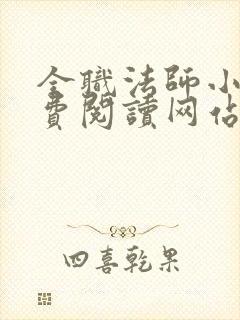 全職法師小
費閱讀网佔
四喜乾果